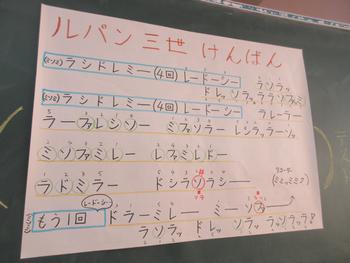 ルパン三世 けんばん
(ミソミ) ラシドレミー (4回) レードーシー ラソラッ
ドレッソラッ ララソファミ
(ミソミ) ラシドレミー (4回) レードーシー ラレーラー
ラーファレシソー ミファソラー レシラッラーソッ
ミソファミレー レファミレドー
ラドミラー ドシラソラシー
(レードーシー)
もう1回 ドラーミレー ミーソファー
ラソラッ ドレッ ソラッ ラソラッラ